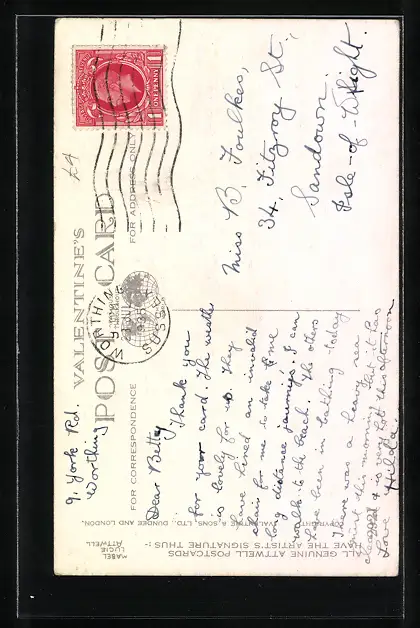 VALENTINE'S
POST CARD
FOR CORRESPONDENCE
FOR ADDRESS ONLY
ONE PENNY
1 1
WORTHING
SUSSEX
£4
9, York Rd.
Worthing
Dear Betty
Thank you
for your card. The weather
is lovely for us. They
have hired an invalid
chair for me to take me
long distance journeys. I can
walk to the beach. The others
have been in bathing today
There was a heavy sea
mist this morning but it has
cleared & is very hot this afternoon
Love Hilda.
Miss B. Foulkes,
34, Fitzroy St.,
Sandown.
Isle-of-Wight.
COPYRIGHT.
VALENTINE & SONS, LTD., DUNDEE AND LONDON.
ALL GENUINE ATTWELL POSTCARDS
HAVE THE ARTIST'S SIGNATURE THUS:-
MABEL
LUCIE
ATTWELL